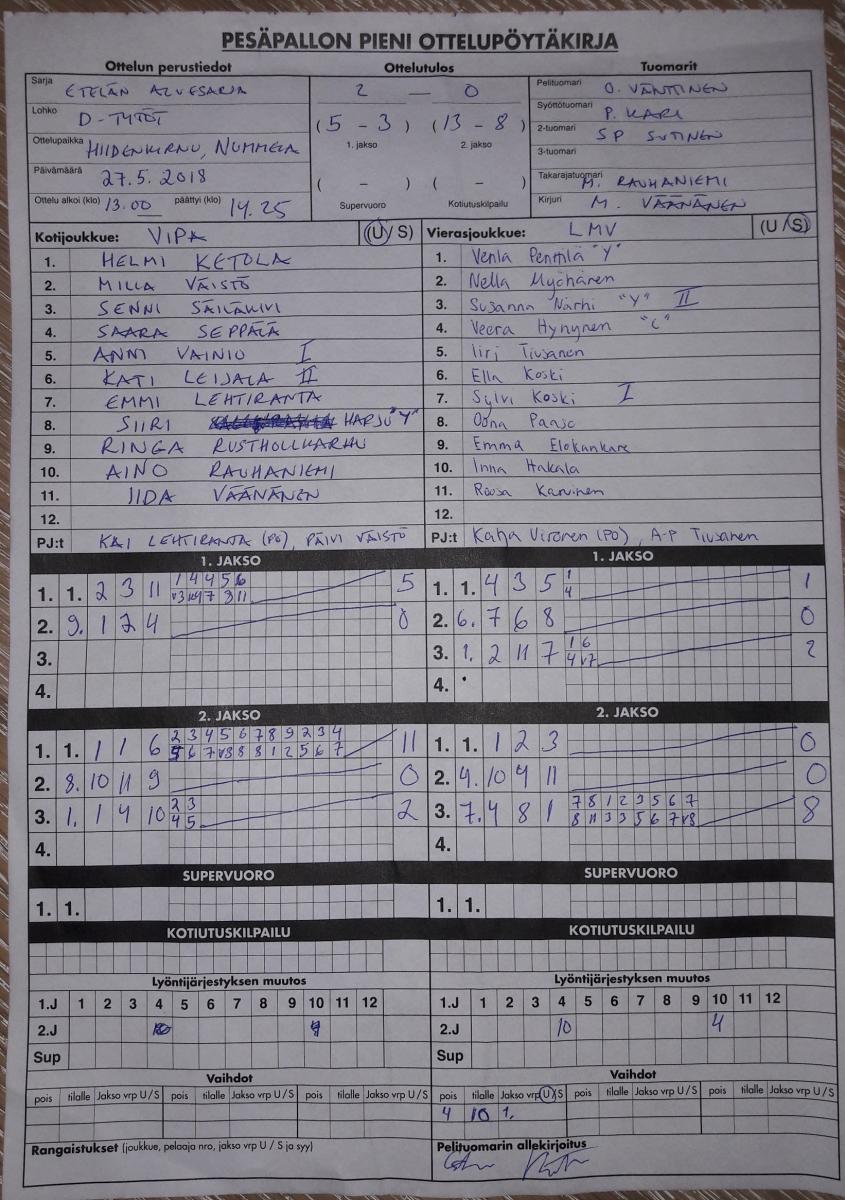 PESÄPALLON PIENI OTTELUPÖYTÄKIRJA
Ottelun perustiedot
Sarja ETELÄN ALUESARJA
Lohko D-TYTÖT
Ottelupaikka HIIDENKIRNU, NUMMELA
Päivämäärä 27.5.2018
Ottelu alkoi (klo) 13.00 päättyi (klo) 14.25
Ottelutulos
2 — 0
(5 - 3) (13 - 8)
1. jakso 2. jakso
( - ) ( - )
Supervuoro Kotiutuskilpailu
Tuomarit
Pelituomari O. VÄNTTINEN
Syöttötuomari P. KARI
2-tuomari SP SUTINEN
3-tuomari
Takarajatuomari M. RAUHANIEMI
Kirjuri M. VÄÄNÄNEN
Kotijoukkue: VIPA (U/S)
1. HELMI KETOLA
2. MILLA VÄISTÖ
3. SENNI SÄILÄKIVI
4. SAARA SEPPÄLÄ
5. ANNI VAINIO I
6. KATI LEIJALA II
7. EMMI LEHTIRANTA
8. SIIRI HARJU "Y"
9. RINGA RUSTHOLLKARHU
10. AINO RAUHANIEMI
11. IIDA VÄÄNÄNEN
12.
PJ:t KAI LEHTIRANTA (PÖ), PÄIVI VÄISTÖ
Vierasjoukkue: LMV (U/S)
1. Venla Penttilä "Y"
2. Nella Myöhänen
3. Susanna Närhi "Y" II
4. Veera Hynynen "C"
5. Iiri Tiusanen
6. Ella Koski
7. Sylvi Koski I
8. Oona Paaso
9. Emma Elokankare
10. Inna Hakala
11. Roosa Karvinen
12.
PJ:t Katja Vironen (PÖ), A-P Tiusanen
1. JAKSO
1 4 4 5 6
1. 1. 2 3 11 5
2. 9. 1 2 4 0
3.
4.
1. JAKSO
1
1. 1. 4 3 5 1
4
2. 6. 7 6 8 0
1 6
3. 1. 2 11 7 2
4 v7
4.
2. JAKSO
2 3 4 5 6 7 8 9 2 3 4
1. 1. 1 1 6 11
5 6 7 v3 8 8 1 2 5 6 7
2. 8. 10 11 9 0
2 3
3. 1. 1 4 10 2
4 5
4.
2. JAKSO
1. 1. 1 2 3 0
2. 4. 10 9 11 0
7 8 1 2 3 5 6 7
3. 7. 4 8 1 8
8 11 3 3 5 6 7 v8
4.
SUPERVUORO
1. 1.
SUPERVUORO
1. 1.
KOTIUTUSKILPAILU
KOTIUTUSKILPAILU
Lyöntijärjestyksen muutos
1.J 1 2 3 4 5 6 7 8 9 10 11 12
2.J
Sup
Lyöntijärjestyksen muutos
1.J 1 2 3 4 5 6 7 8 9 10 11 12
2.J 10 4
Sup
Vaihdot
pois tilalle Jakso vrp U/S pois tilalle Jakso vrp U/S pois tilalle Jakso vrp U/S
Vaihdot
pois tilalle Jakso vrp U/S pois tilalle Jakso vrp U/S pois tilalle Jakso vrp U/S
4 10 1.
Rangaistukset (joukkue, pelaaja nro, jakso vrp U / S ja syy)
Pelituomarin allekirjoitus